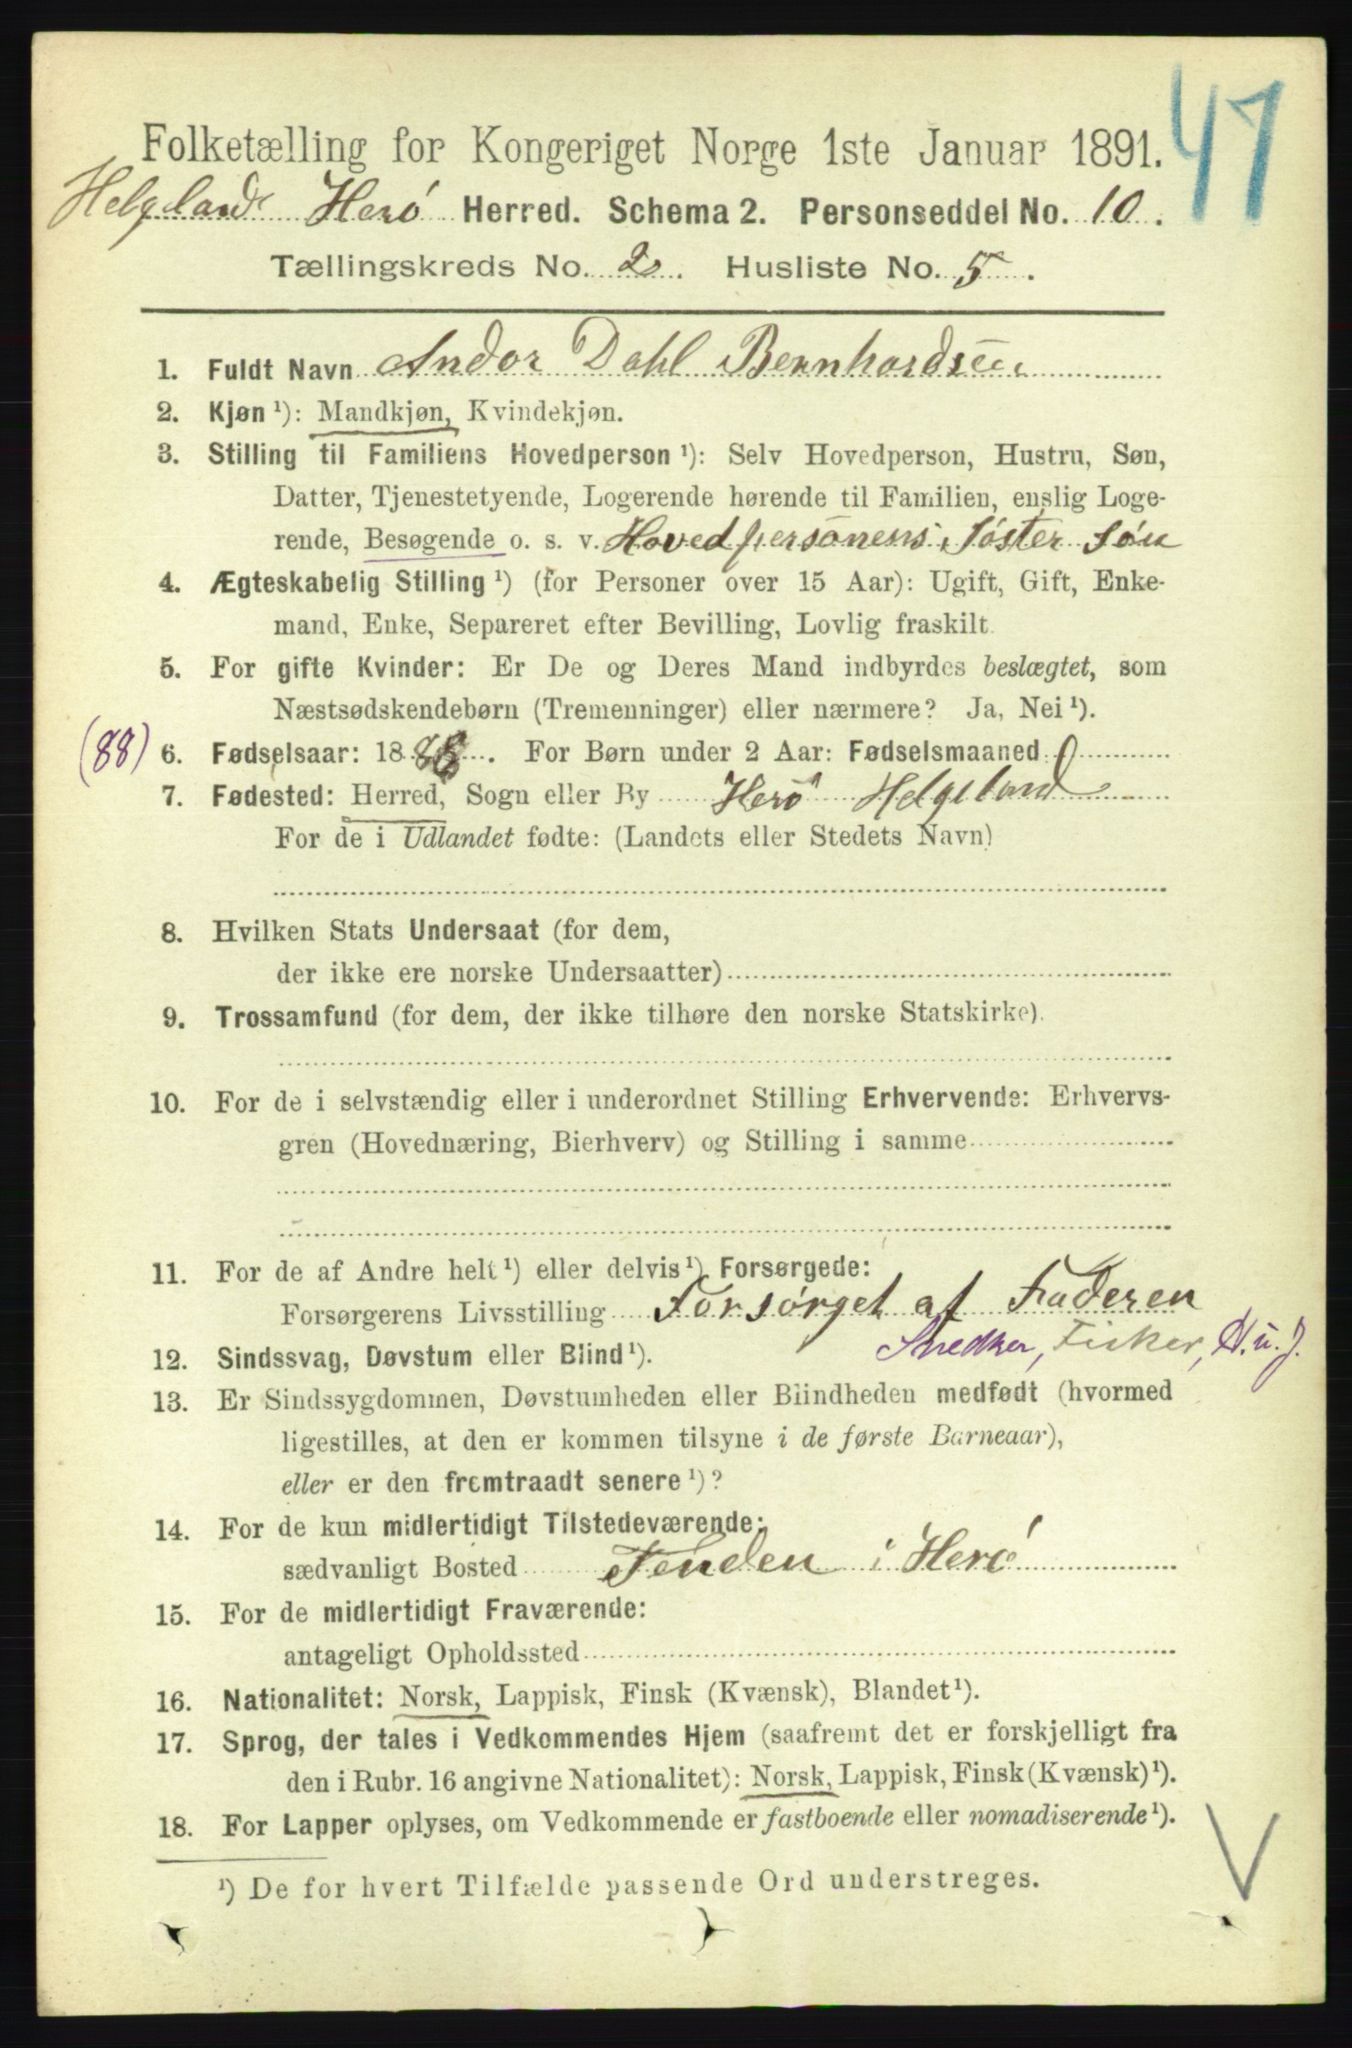 47
Folketælling for Kongeriget Norge 1ste Januar 1891.
Helgelands Herø Herred. Schema 2. Personseddel No. 10.
Tællingskreds No. 2. Husliste No. 5.
1. Fuldt Navn Andor Dahl Bernhardsen
2. Kjøn ¹): Mandkjøn, Kvindekjøn.
3. Stilling til Familiens Hovedperson ¹): Selv Hovedperson, Hustru, Søn,
Datter, Tjenestetyende, Logerende hørende til Familien, enslig Loge-
rende, Besøgende o. s. v. Hovedpersonens Søster Søn
4. Ægteskabelig Stilling ¹) (for Personer over 15 Aar): Ugift, Gift, Enke-
mand, Enke, Separeret efter Bevilling, Lovlig fraskilt.
5. For gifte Kvinder: Er De og Deres Mand indbyrdes beslægtet, som
Næstsødskendebørn (Tremenninger) eller nærmere? Ja, Nei ¹).
(88) 6. Fødselsaar: 1888. For Børn under 2 Aar: Fødselsmaaned
7. Fødested: Herred, Sogn eller By Herø Helgeland
For de i Udlandet fødte: (Landets eller Stedets Navn)
8. Hvilken Stats Undersaat (for dem,
der ikke ere norske Undersaatter)
9. Trossamfund (for dem, der ikke tilhøre den norske Statskirke).
10. For de i selvstændig eller i underordnet Stilling Erhvervende: Erhvervs-
gren (Hovednæring, Bierhverv) og Stilling i samme
11. For de af Andre helt ¹) eller delvis ¹) Forsørgede:
Forsørgerens Livsstilling Forsørget af Faderen
Snedker, Fisker, H. u. J.
12. Sindssvag, Døvstum eller Blind ¹).
13. Er Sindssygdommen, Døvstumheden eller Blindheden medfødt (hvormed
ligestilles, at den er kommen tilsyne i de første Barneaar),
eller er den fremtraadt senere ¹)?
14. For de kun midlertidigt Tilstedeværende:
sædvanligt Bosted Tenden i Herø
15. For de midlertidigt Fraværende:
antageligt Opholdssted
16. Nationalitet: Norsk, Lappisk, Finsk (Kvænsk), Blandet ¹).
17. Sprog, der tales i Vedkommendes Hjem (saafremt det er forskjelligt fra
den i Rubr. 16 angivne Nationalitet): Norsk, Lappisk, Finsk (Kvænsk) ¹).
18. For Lapper oplyses, om Vedkommende er fastboende eller nomadiserende ¹).
V
¹) De for hvert Tilfælde passende Ord understreges.